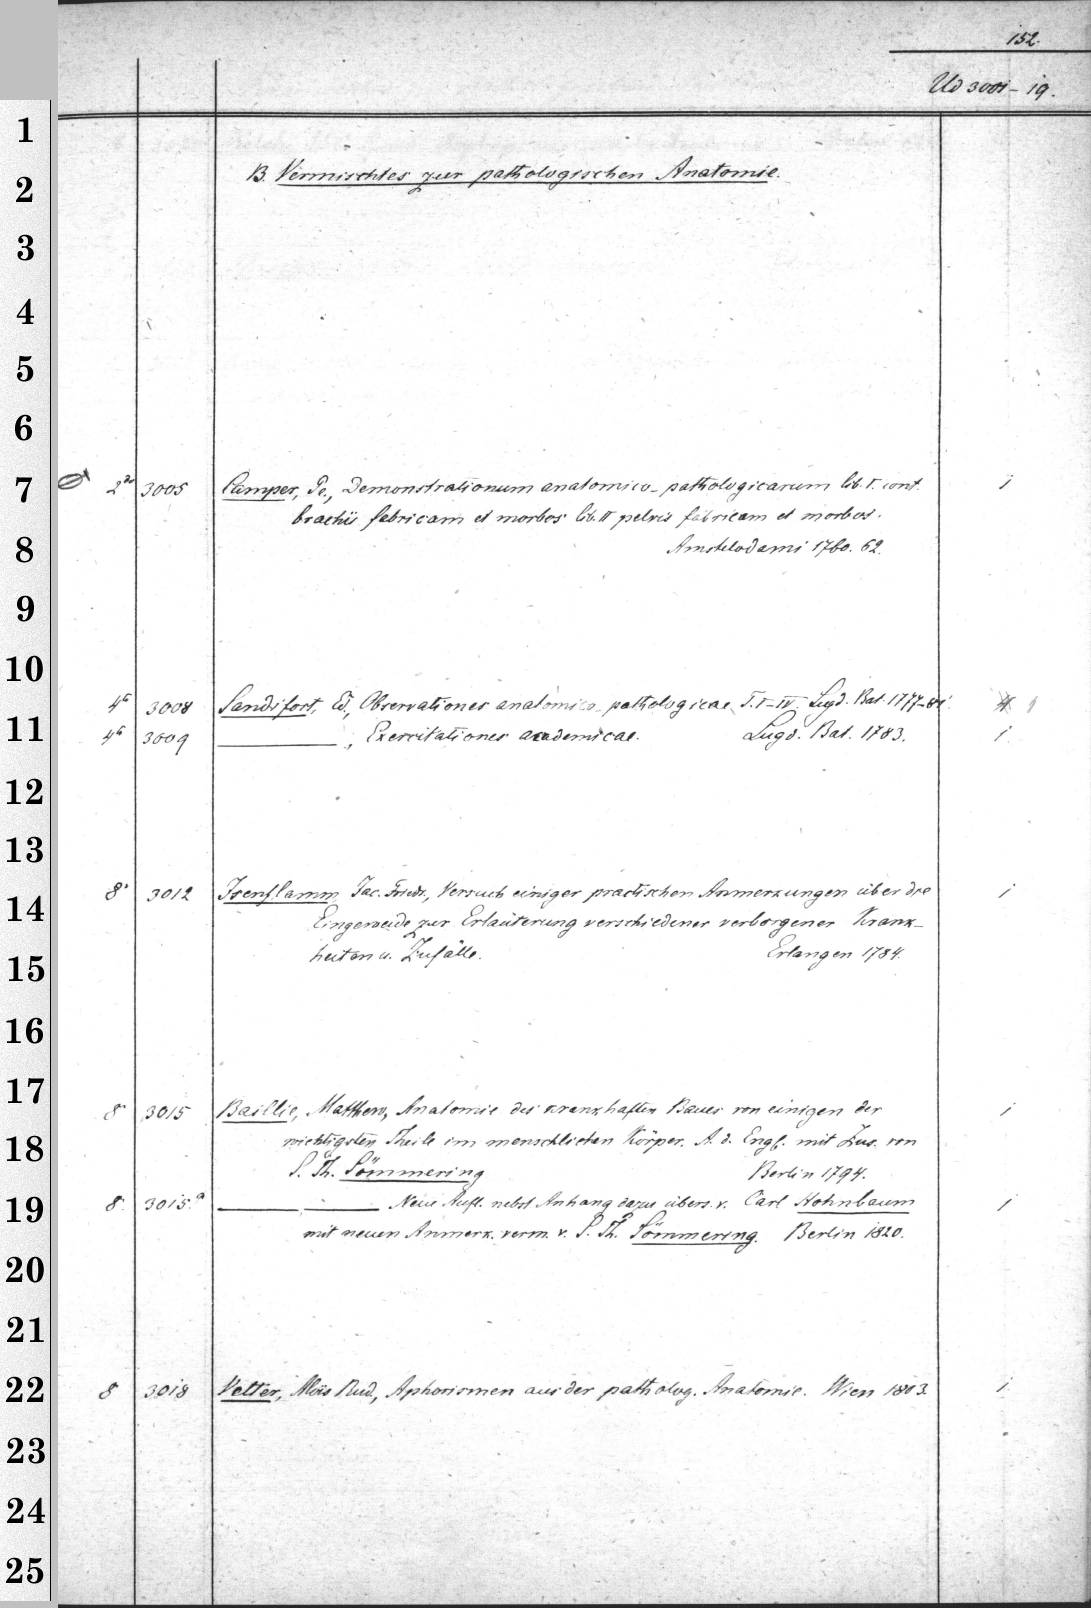 152.
Ud 3001-19.
1
B. Vermischtes zur pathologischen Anatomie.
2
3
4
5
6
7 2° 3005 Camper, Pe., Demonstrationum anatomico-pathologicarum lib. I. cont. 1
brachii fabricam et morbos lib. II pelvis fabricam et morbos.
8 Amstelodami 1760. 62.
9
10
4° 3008 Sandifort, Ed., Observationes anatomico-pathologicae T. I-IV. Lugd. Bat. 1777-81
11 4° 3009 ———, Exercitationes academicae. Lugd. Bat. 1783. 1
12
13
8° 3012 Isenflamm, Jac. Friedr., Versuch einiger practischen Anmerkungen über die 1
14 Eingeweide zur Erläuterung verschiedener verborgener Krank-
15 heiten u. Zufälle. Erlangen 1784.
16
17
8° 3015 Baillie, Matthew, Anatomie des krankhaften Baues von einigen der 1
18 wichtigsten Theile im menschlichen Körper. A. d. Engl. mit Zus. von
S. Th. Sömmering Berlin 1794.
19 8° 3015.a ——— ——— Neue Aufl. nebst Anhang dazu übers. v. Carl Hohnbaum 1
mit neuen Anmerk. verm. v. S. Th. Sömmering. Berlin 1820.
20
21
22 8 3018 Vetter, Alois Rud., Aphorismen aus der patholog. Anatomie. Wien 1803. 1
23
24
25